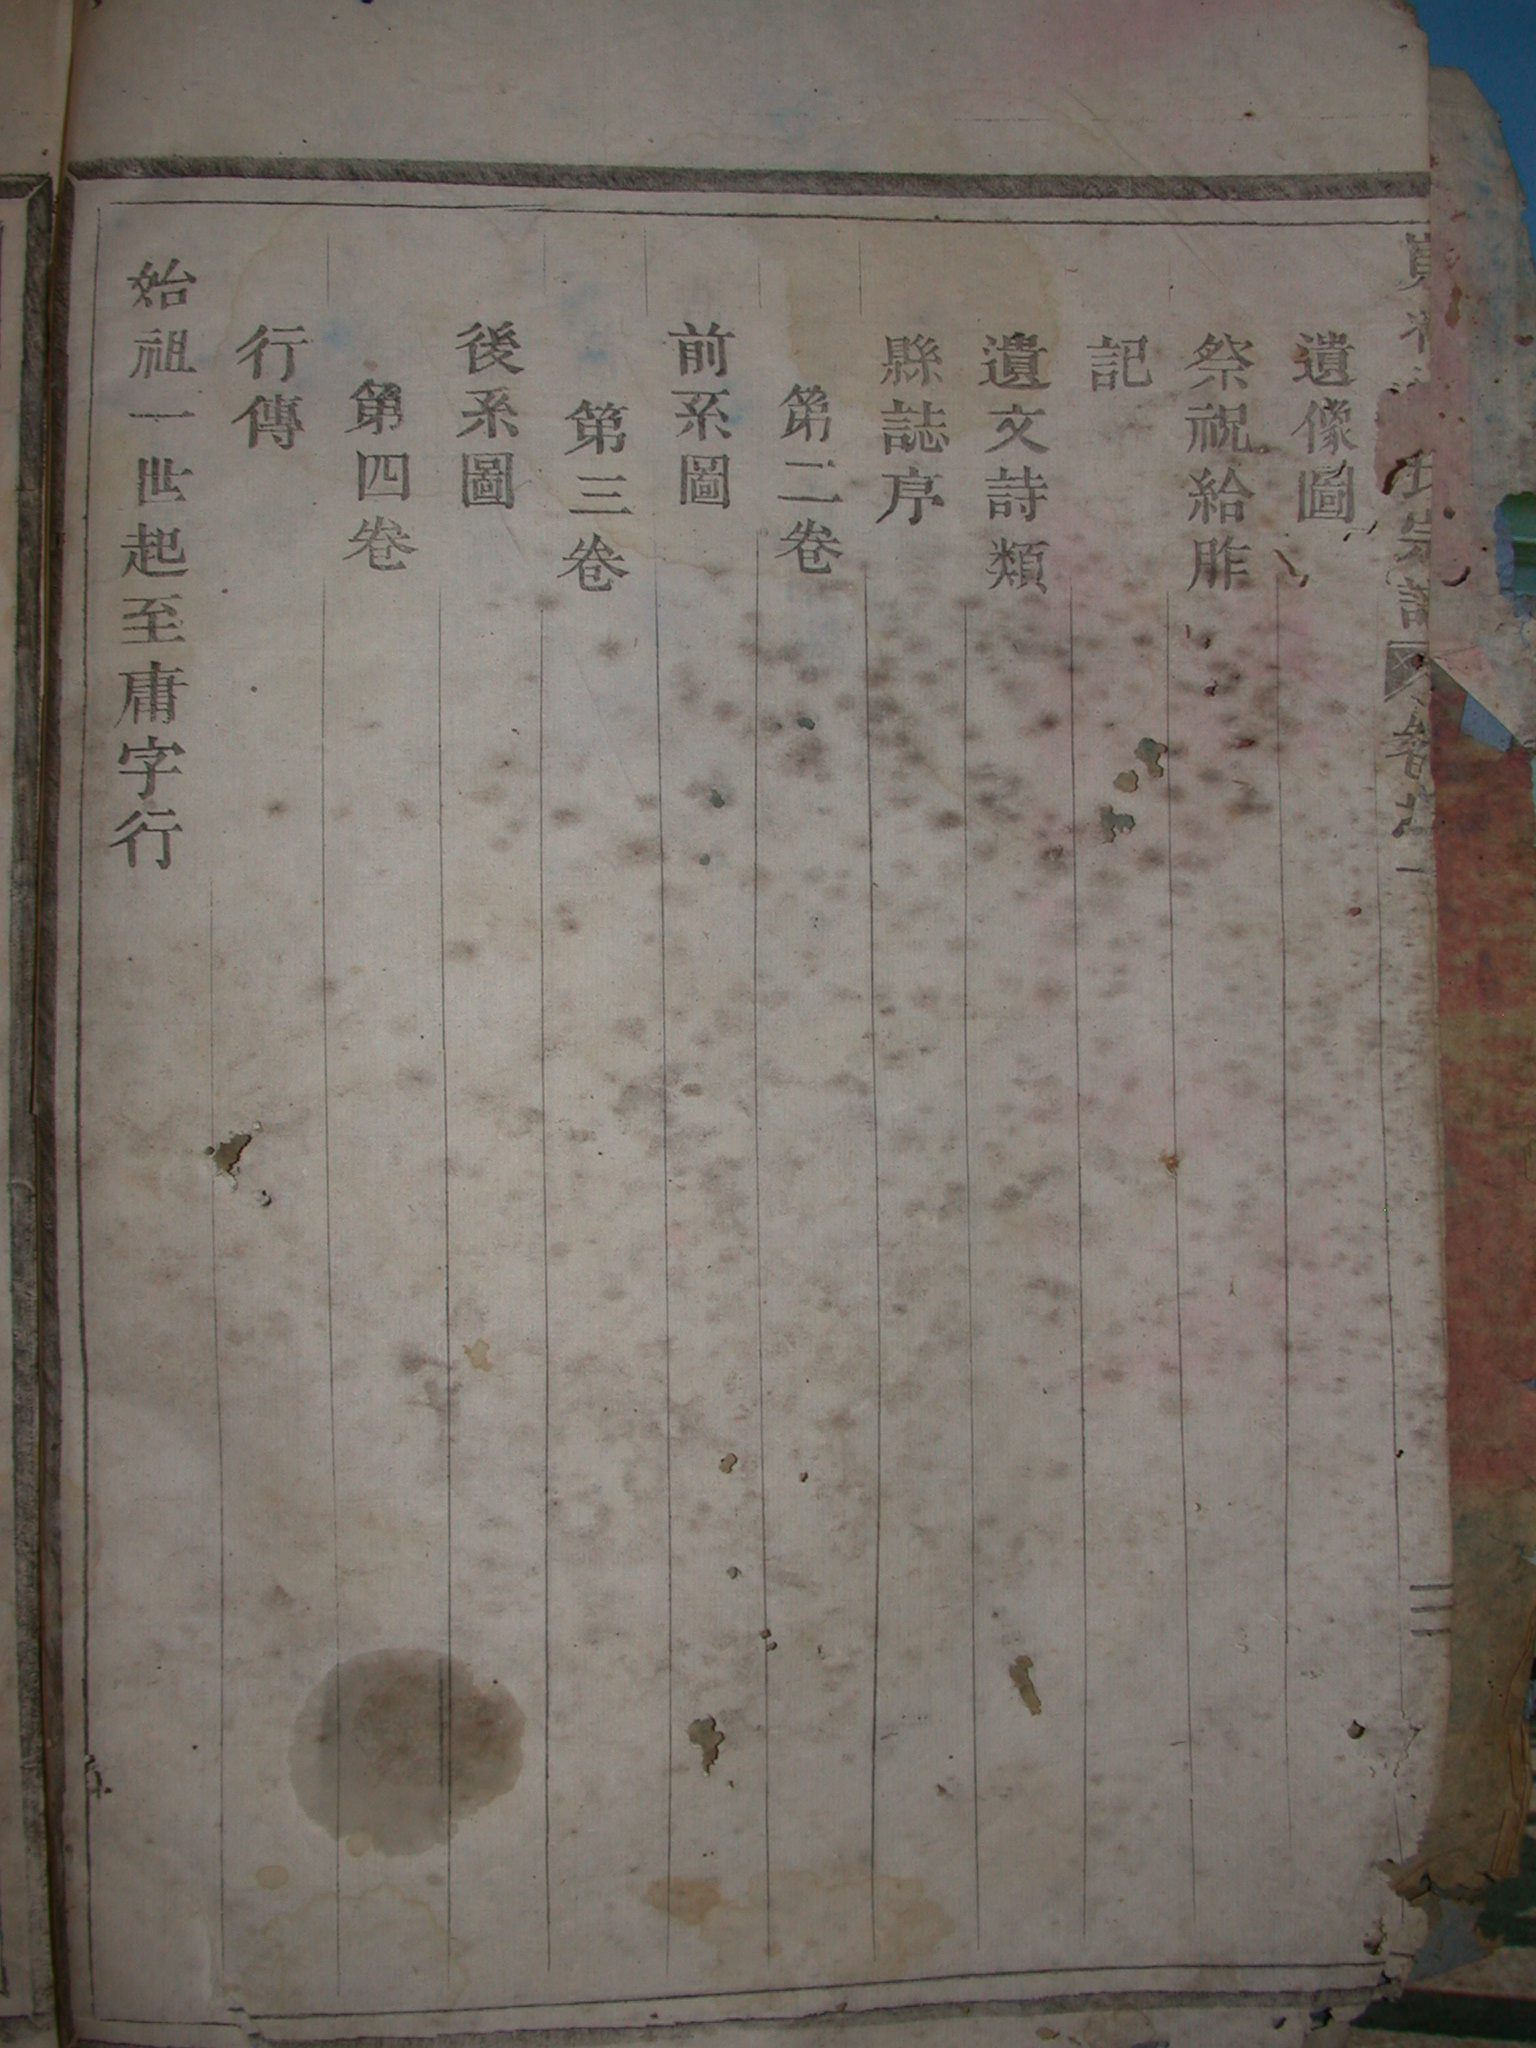 氏宗譜 卷之一
二
遺像圖
祭祝給胙
記
遺文詩類
縣誌序
第二卷
前系圖
第三卷
後系圖
第四卷
行傳
始祖一世起至庸字行